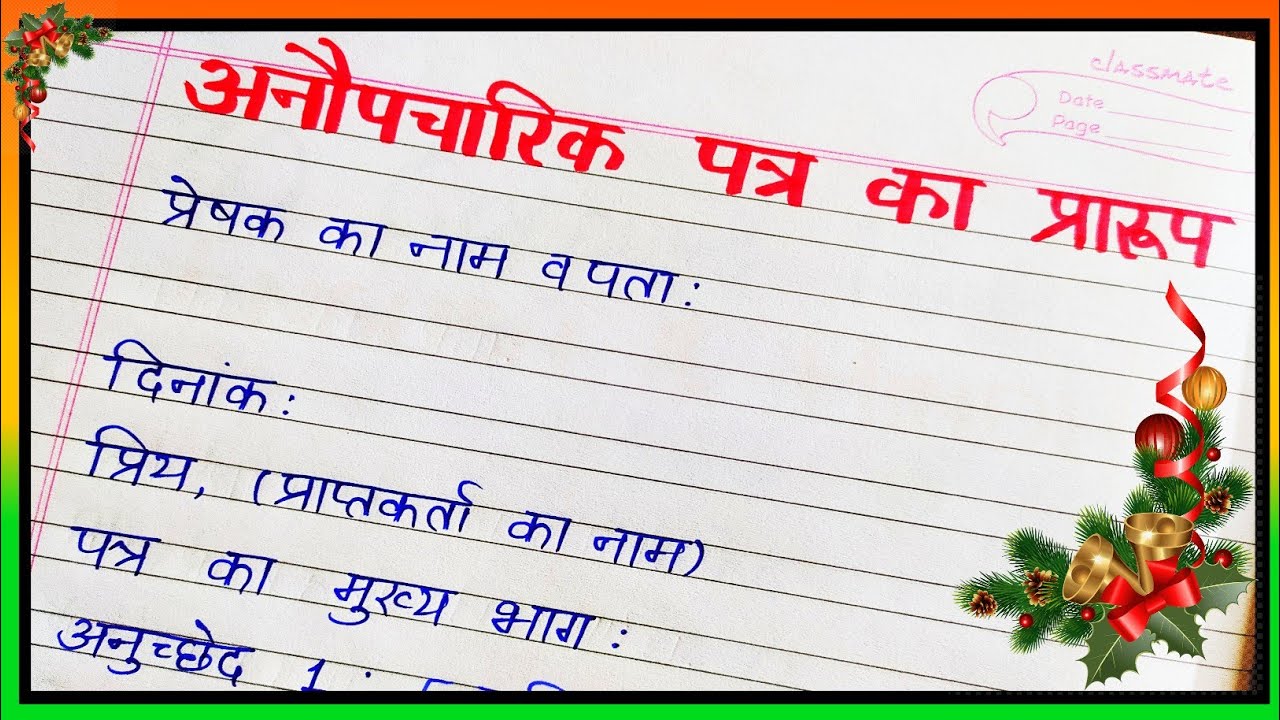 classmate
Date
Page
अनौपचारिक पत्र का प्रारूप
प्रेषक का नाम व पता:
दिनांक:
प्रिय, (प्राप्तकर्ता का नाम)
पत्र का मुख्य भाग:
अनुच्छेद 1: